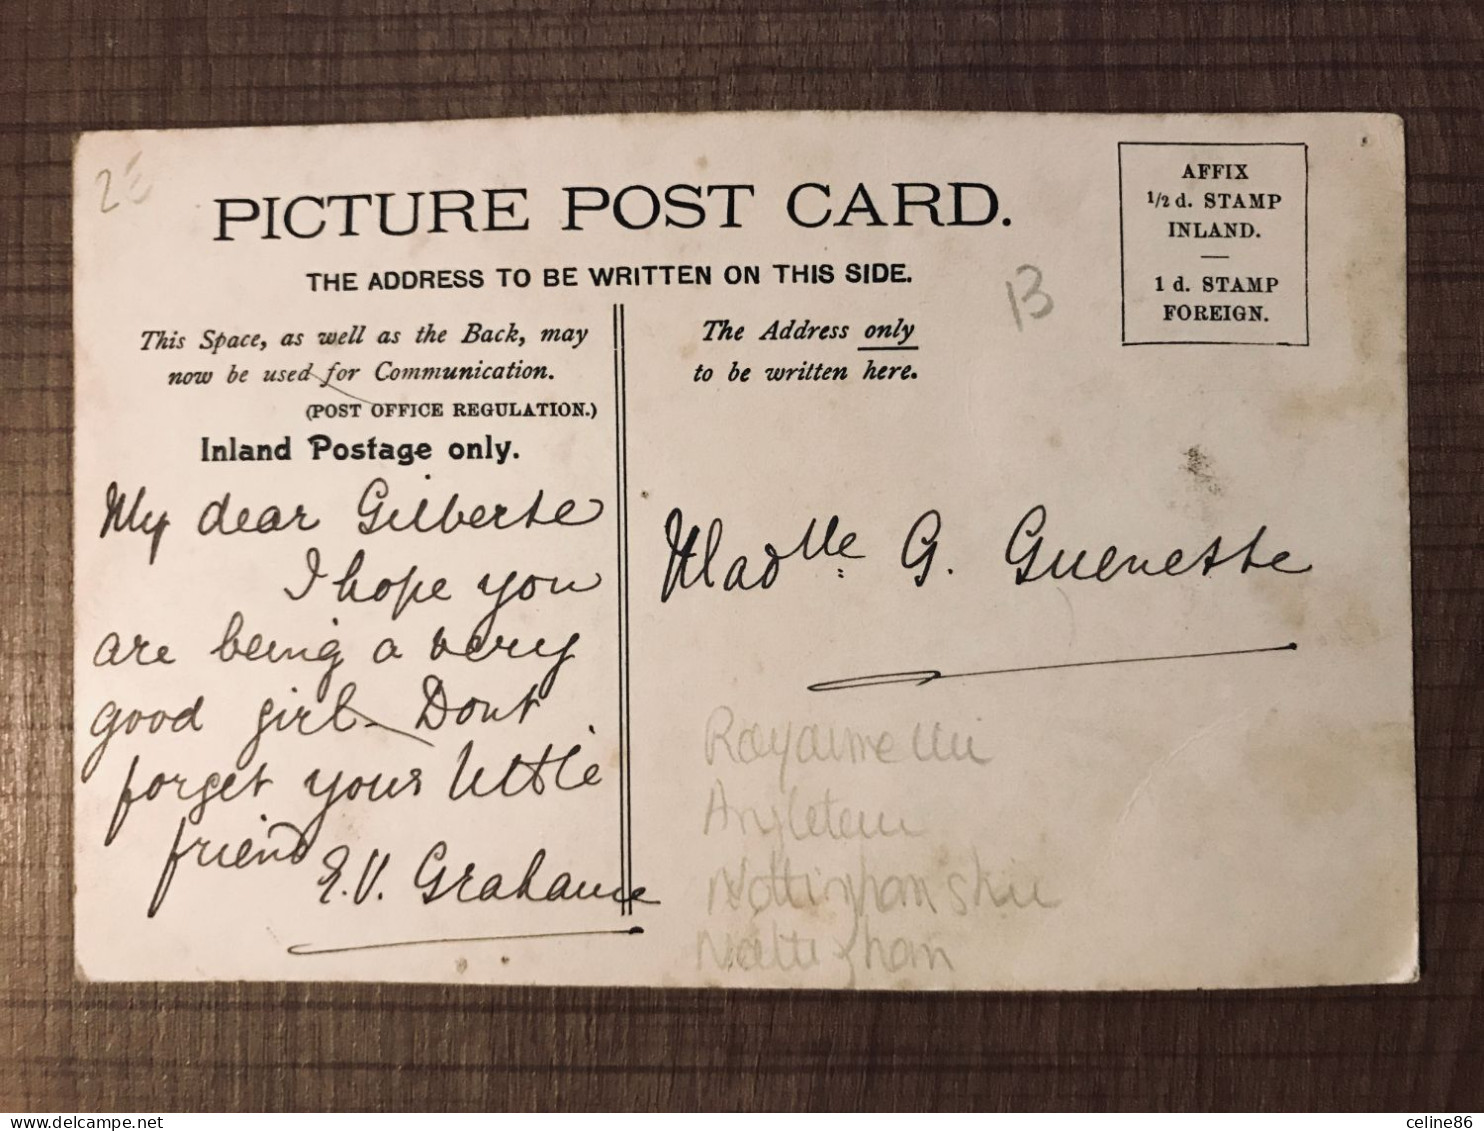 2E
PICTURE POST CARD.
THE ADDRESS TO BE WRITTEN ON THIS SIDE.
AFFIX
1/2 d. STAMP
INLAND.
—
1 d. STAMP
FOREIGN.
13
This Space, as well as the Back, may
now be used for Communication.
(POST OFFICE REGULATION.)
Inland Postage only.
My dear Gilberte
I hope you
are being a very
good girl - Dont
forget your little
friend
E.V. Grahame
The Address only
to be written here.
Madlle G. Guenette
Angleterre
Nottinghamshire
Nottingham
celine86